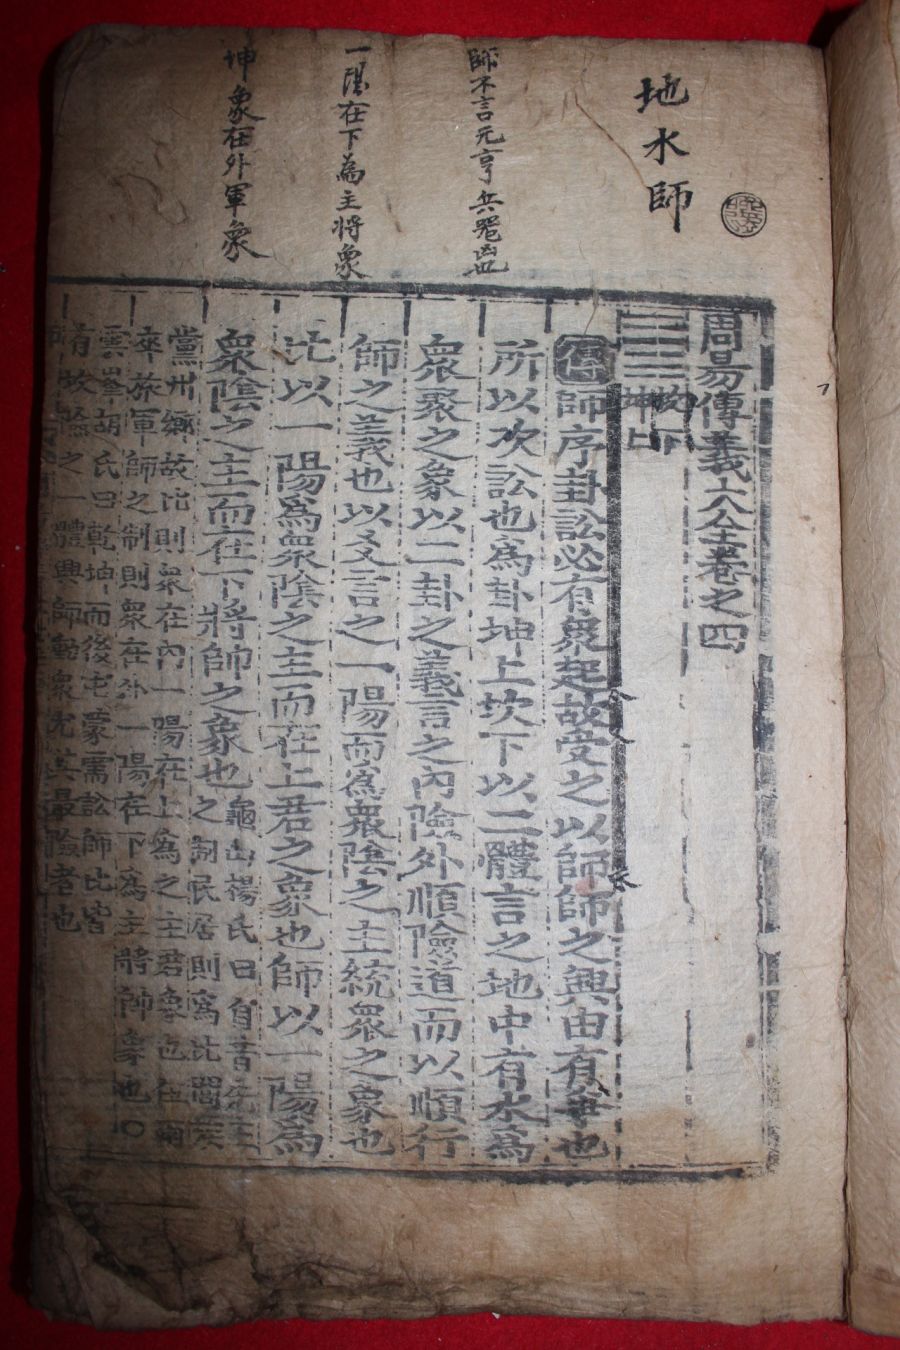 地水師
師不言元亨兵器凶地
一陽在下為主將象
坤象在外軍象
周易傳義大全卷之四
坎下
坤上
傳師序卦訟必有衆起故受之以師師之興由有爭也
所以次訟也爲卦坤上坎下以二體言之地中有水爲
衆聚之象以二卦之義言之內險外順險道而以順行
師之義也以爻言之一陽而爲衆陰之主統衆之象也
比以一陽爲衆陰之主而在上君之象也師以一陽爲
衆陰之主而在下將帥之象也龜山楊氏曰自古先王
之制民居則爲比閭族
黨州鄉故比則衆在內一陽在上爲之主君象也在
卒旅軍師之制則衆在外一陽在下爲主將帥象也
雲峯胡氏曰乾坤而後屯蒙需訟師比皆
有坎險之一體興師動衆尤其最險者也